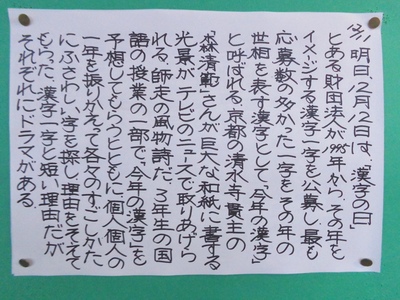 12/11 明日、12月12日は、「漢字の日」
とある財団法人が1995年から、その年を
イメージする漢字一字を公募し、最も
応募数の多かった一字を、その年の
世相を表す漢字として「今年の漢字」
と呼ばれる。京都の清水寺貫主の
「森清範」さんが巨大な和紙に書する
光景が、テレビのニュースで取りあげら
れる、師走の風物詩だ。3年生の国
語の授業の一部で、「今年の漢字」を
予想してもらうとともに、個人個人の
一年を振りかえって各々のすごしかた
にふさわしい字を探し、理由をそえて
もらった。漢字一字と短い理由だが、
それぞれにドラマがある。